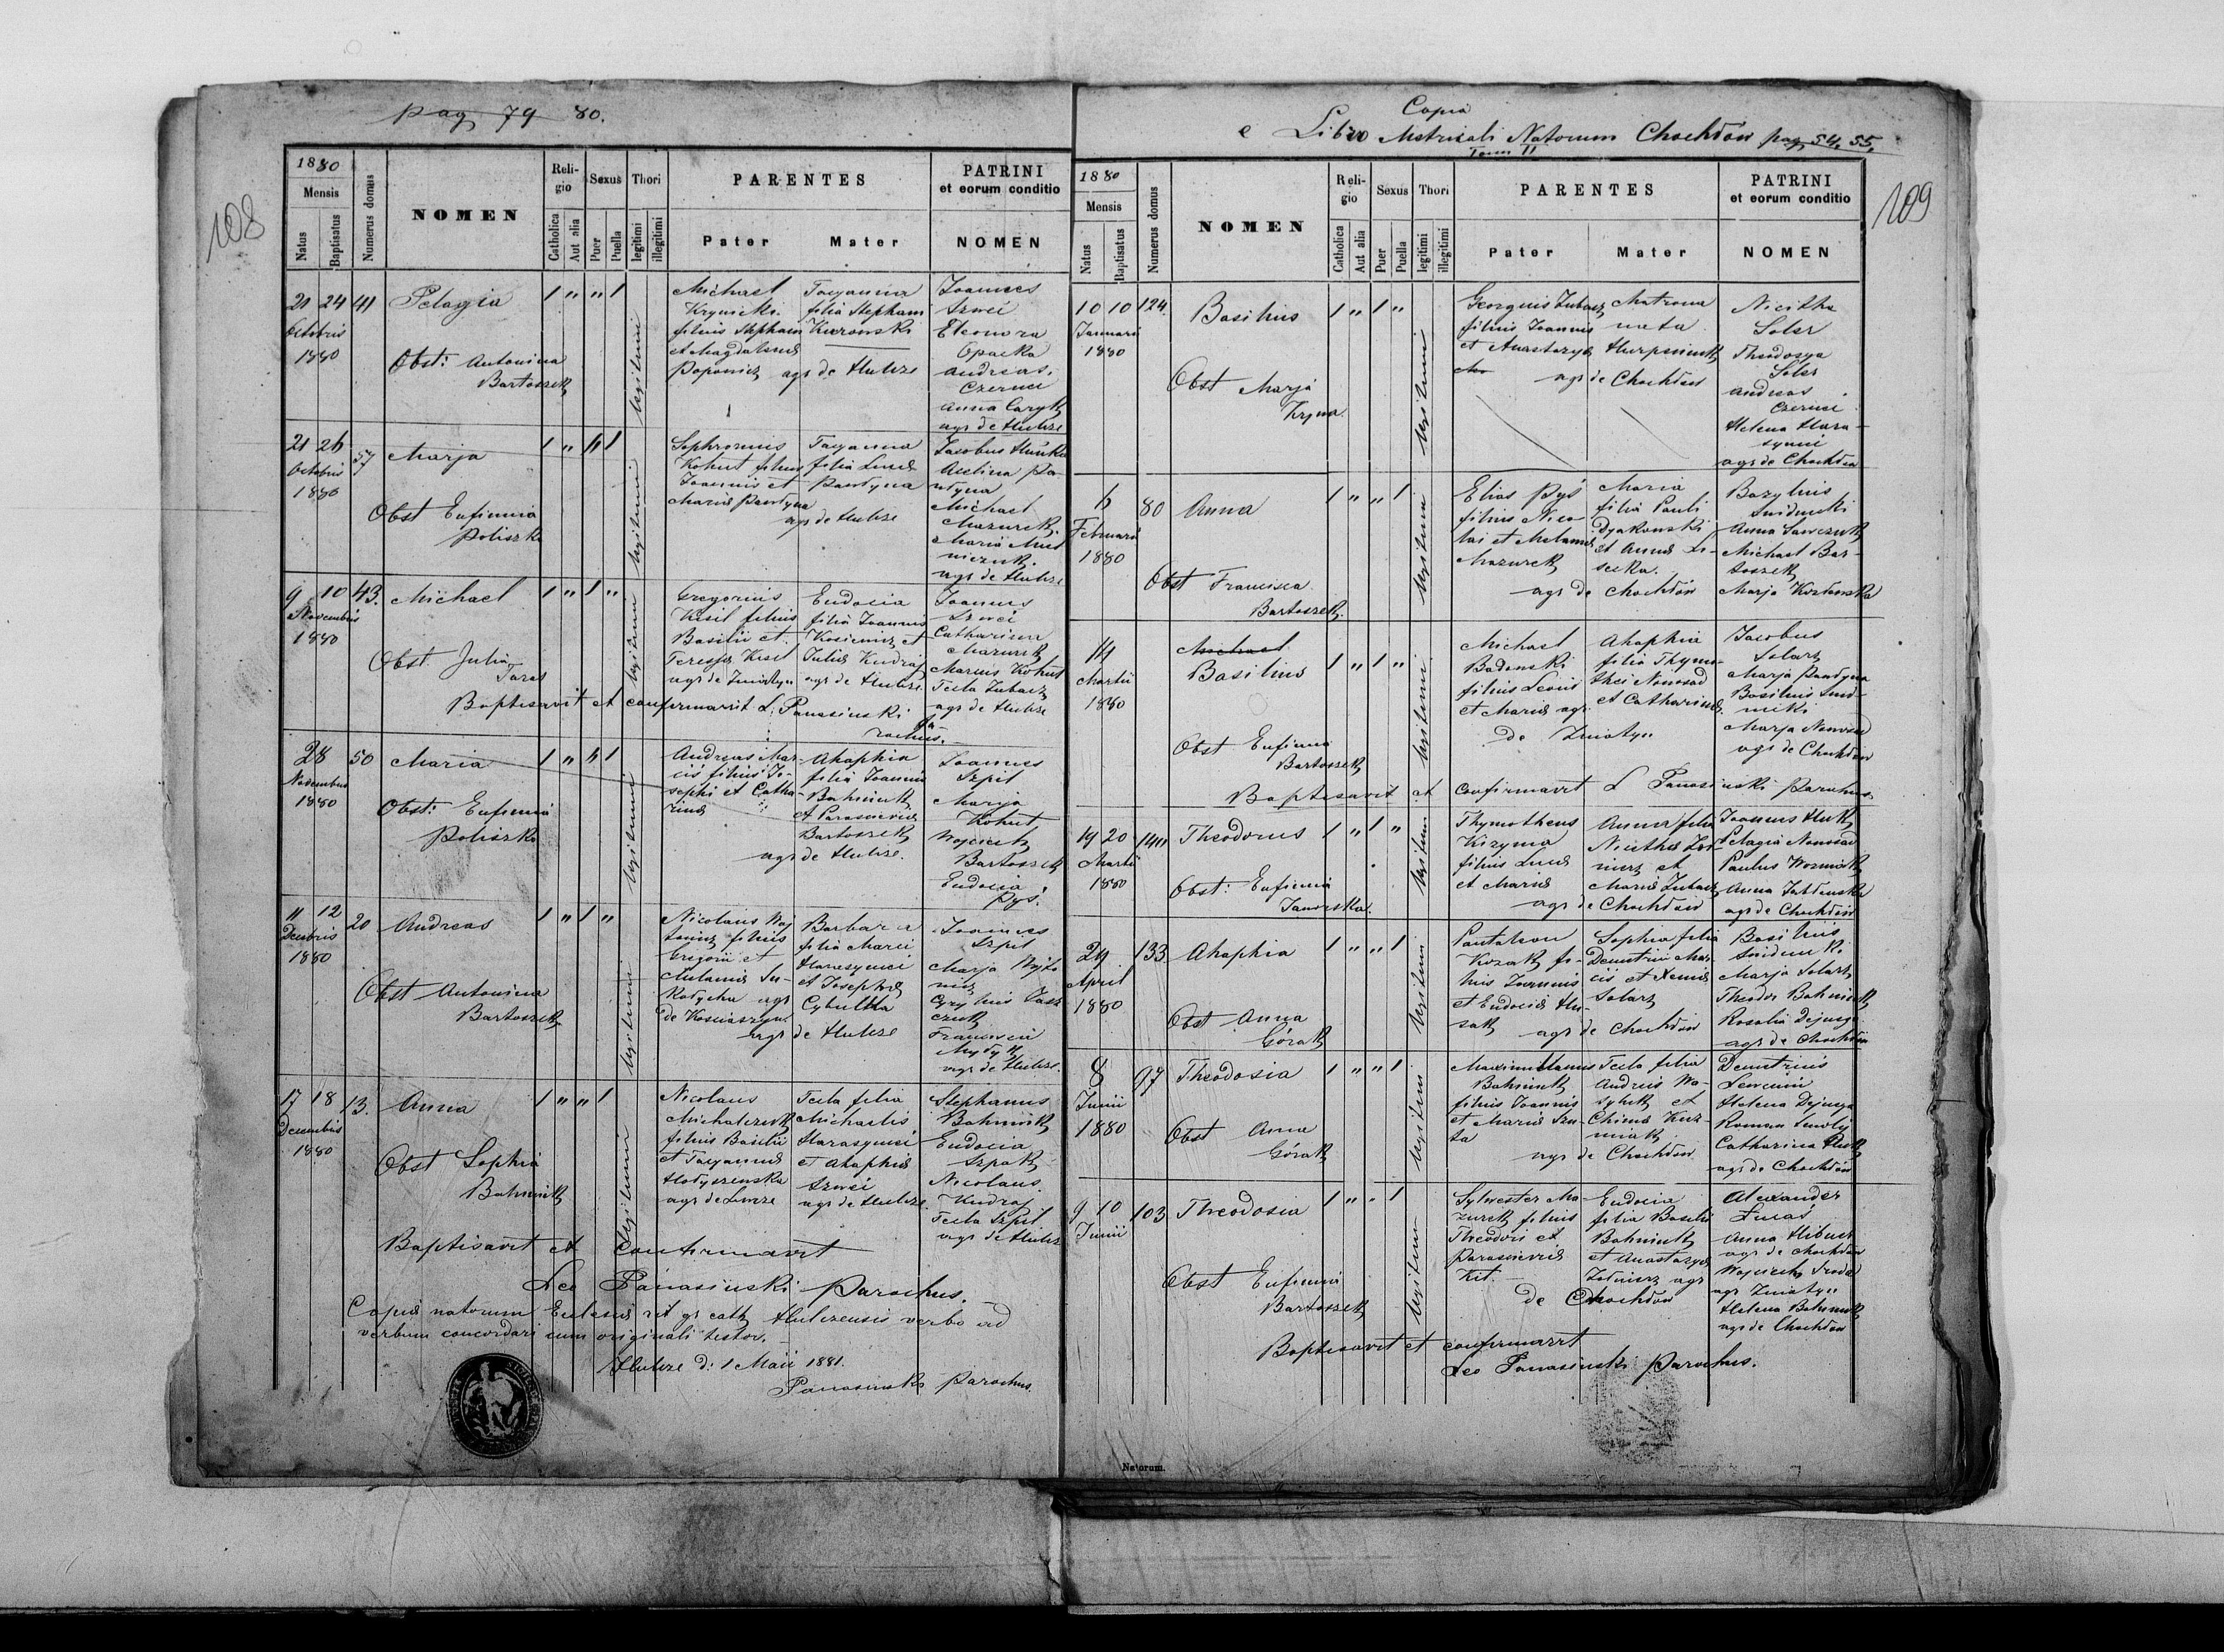 pag 79 80.
108
1880
Mensis
Natus
Baptisatus
Numerus domus
NOMEN
Reli-
gio
Catholica
Aut alia
Sexus
Puer
Puella
Thori
legitimi
illegitimi
PARENTES
Pater
Mater
PATRINI
et eorum conditio
NOMEN
21 24 41 Pelagia 1 " " 1
Octobris
1880
Obst: Antonina
Bartoszek
legitimi
Michael
filius Stephani
et Magdalena
Popowicz
Tacyanna
filia Stephani
Kurowski
agr de Hulcze
Joannes
Szwci
Eleonora
Opacka
Andreas
Czerwci
Anna Caryk
agr de Hulcze
21 26 57 Marja 1 " " 1
Octobris
1880
Obst Eufimia
Poliszko
legitimi
Sophronius
Kohut filius
Joannis et
Maria Pantyna
Tacyanna
filia Luca
Pantyna
agr de Hulcze
Jacobus
Acelina Pa-
ntyna
Michael
Mazurek
Maria
agr de Hulcze
9 10 43. Michael 1 " 1 "
Novembris
1880
Obst. Julia
Taras
legitimi
Gregorius
Kisil filius
Basilii et
Teressa Kisil
agr de Zniatyn
Eudocia
filia Joannis
Kosiewicz et
Julia Kudraj
agr de Hulcze
Joannes
Szwci
Catharina
Mazurek
Marcus Kohut
Tecla Zubacz
agr de Hulcze
Baptisavit et confirmavit L. Panasinski Pa-
rochus.
28 50 Maria 1 " " 1
Novembris
1880
Obst: Eufimia
Poliszko
legitimi
Andreas Mar-
cis filius Jo-
sephi et Catha-
rina
Ahaphia
filia Joannis
Bahniuk
et Parascevia
Bartoszek
agr de Hulcze.
Joannes
Szpit
Marija
Kohut
Wojciech
Bartoszek
Eudocia
Pyś.
11 12 20 Andreas 1 " 1 "
Decembris
1880
Obst Antonina
Bartoszek
legitimi
Nicolaus Woj-
towicz filius
Gregorii et
Melania Su-
kotycka agr
de Kosciaszyn
Barbara
filia Marci
Harasymci
et Josepha
Cybulska
agr de Hulcze
Joannes
Szpit
Marja Wojto
wicz
Cyrylius
czuk
Franciscu
agr de Hulcze.
17 18 13. Anna 1 " " 1
Decembris
1880
Obst Sophia
Bahniuk
legitimi
Nicolaus
Michalczuk
filius Basilii
et Tacyanna
Hotyszewska
agr de Liwcze
Tecla filia
Michaelis
Harasymci
et Ahaphia
Szwci
agr de Hulcze
Stephanus
Bahniuk
Eudocia
Szpak
Nicolaus
Kudraj
Tecla Szpit
agr de Hulcze
Baptisavit et confirmavit
Leo Panasinski Parochus.
Copia natorum Eclesia rit gr cath Hulczensis verbo ad
verbum concordari cum originali testor.
Hulcze d: 1 Maii 1881.
Panasinski Parochus.
Copia
e Libro Metricali Natorum Chochłów pag 54. 55.
Tom II
109
1880
Mensis
Natus
Baptisatus
Numerus domus
NOMEN
Reli-
gio
Catholica
Aut alia
Sexus
Puer
Puella
Thori
legitimi
illegitimi
PARENTES
Pater
Mater
PATRINI
et eorum conditio
NOMEN
10 10 124. Basilius 1 " 1 "
Januarii
1880
Obst Marja
Kryna
legitimi
Georgius Zubacz
filius Joannis
et Anastazya
Matrona
nata
agr de Chochłów
Nicitha
Soler
Theodosya
Soler
Andreas
Czerwci
Helena Hara-
symci
agr de Chochłów
6 80 Anna 1 " " 1
Februarii
1880
Obst Francisca
Bartoszek
legitimi
Elias Pyś
filius Nico-
lai et Melania
Mazurek
Maria
filia Pauli
Dyakowski
et Anna Li-
secka.
agr de Chochłów
Bazylius
Smidniuki
Anna Sawczuk
Michael Bar-
toszek
Marja Kozłowska
14 Michael
Basilius 1 " 1 "
Martii
1880
Obst Eufimia
Bartoszek
legitimi
Michael
Badenski
filius Leonis
et Maria agr
de Zniatyn
Ahaphia
filia Thymo-
thei Nowosad
et Catharina
Jacobus
Solarz
Marja Pantyna
Basilius Smid-
niuki
Marja Nowosad
agr de Chochłów
Baptisavit et confirmavit L Panasinski Parochus.
19 20 140 Theodorus 1 " 1 "
Martii
1880
Obst: Eufimia
Janowska.
legitimi
Thymotheus
Kizyma
filius Luca
et Maria
Anna filia
Nicitha Zol-
nierz et
Maria Zubacz
agr de Chochłów
Joannes Huk
Pelagia Nowosad
Paulus Wozniak
Anna
agr de Chochłów
29 133 Ahaphia 1 " " 1
April
1880
Obst Anna
Górak
legitimi
Pantaleon
Kozak fi-
lius Joannis
et Eudocia Hu-
sak
Sophia filia
Demetrii Mar-
cis et Xenia
Solarz
agr de Chochłów
Basilius
Smidniuki
Marja Solarz
Theodor Bahniuk
Rosalia Dejnega
agr de Chochłów
8 97 Theodosia 1 " " 1
Junii
1880
Obst Anna
Górak
legitimi
Maximilianus
Bahniuk
filius Joannis
et Maria Szu-
ta
Tecla filia
Andreis Wa-
syluk et
Chima Kuz-
miak
agr de Chochłów
Demetrius
Lewcuni
Helena Dejnega
Roman Smolij
Catharina Huk
agr de Chochłów
9 10 103 Theodosia 1 " " 1
Junii
Obst Eufimia
Bartoszek
legitimi
Sylwester Ma-
zurek filius
Theodori et
Parascevia
Kit.
Eudocia
filia Basilii
Bahniuk
et Anastazya
Zołnierz agr
de Chochłów
Alexander
Lucaś
Anna Hibner
agr de Chochłów
Wojciech Sroda
agr Zniatyn
Helena Bahniuk
agr de Chochłów
Baptisavit et confirmavit
Leo Panasinski Parochus.
Natorum.